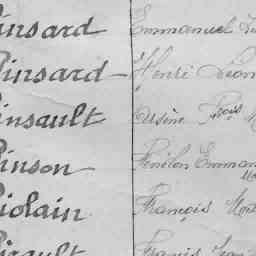 insard Emmanuel
Pinsard Henri Léon
insault Arsène Frois
Pinson Fénélon Emman
iolain François
irault Francis